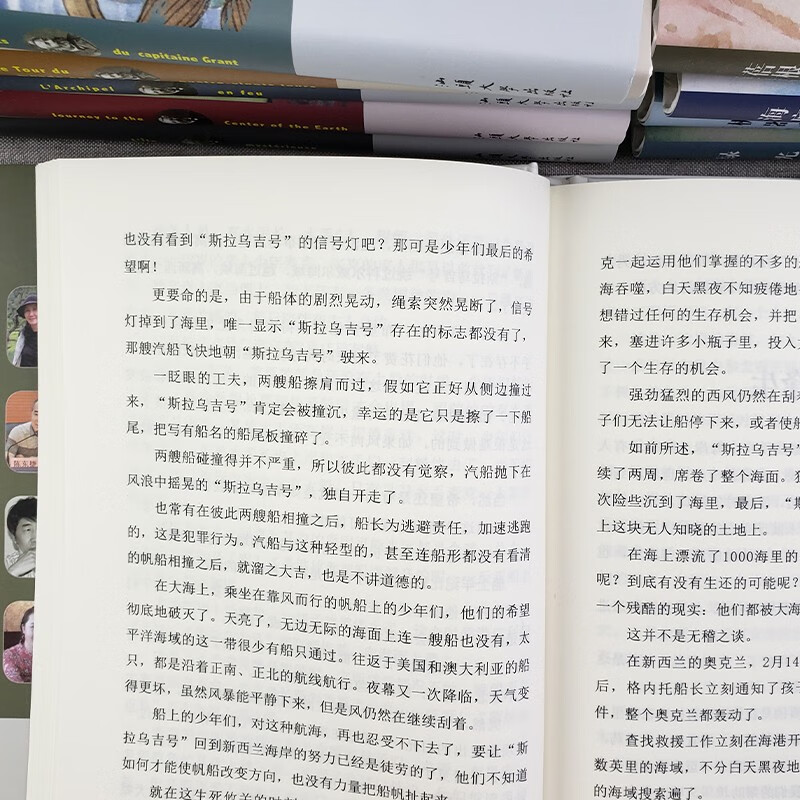 du capitaine Grant
汕頭大學出版社
Tour du
L'Archipel en feu
汕頭大學出版社
Journey to the Center of the Earth
汕頭大學出版社
mysterieuse
也没有看到“斯拉乌吉号”的信号灯吧？那可是少年们最后的希
望啊！
更要命的是，由于船体的剧烈晃动，绳索突然晃断了，信号
灯掉到了海里，唯一显示“斯拉乌吉号”存在的标志都没有了，
那艘汽船飞快地朝“斯拉乌吉号”驶来。
一眨眼的工夫，两艘船擦肩而过，假如它正好从侧边撞过
来，“斯拉乌吉号”肯定会被撞沉，幸运的是它只是擦了一下船
尾，把写有船名的船尾板撞碎了。
两艘船碰撞得并不严重，所以彼此都没有觉察，汽船抛下在
风浪中摇晃的“斯拉乌吉号”，独自开走了。
也常有在彼此两艘船相撞之后，船长为逃避责任，加速逃跑
的，这是犯罪行为。汽船与这种轻型的，甚至连船形都没有看清
的帆船相撞之后，就溜之大吉，也是不讲道德的。
在大海上，乘坐在靠风而行的帆船上的少年们，他们的希望
彻底地破灭了。天亮了，无边无际的海面上连一艘船也没有，太
平洋海域的这一带很少有船只通过。往返于美国和澳大利亚的船
只，都是沿着正南、正北的航线航行。夜幕又一次降临，天气变
得更坏，虽然风暴能平静下来，但是风仍然在继续刮着。
船上的少年们，对这种航海，再也忍受不下去了，要让“斯
拉乌吉号”回到新西兰海岸的努力已经是徒劳的了，他们不知道
如何才能使帆船改变方向，也没有力量把船帆扯起来。
就在这生死攸关的时刻
克一起运用他们掌握的不多的
海吞噬，白天黑夜不知疲倦地
想错过任何的生存机会，并把
来，塞进许多小瓶子里，投入
了一个生存的机会。
强劲猛烈的西风仍然在刮
子们无法让船停下来，或者使
如前所述，“斯拉乌吉号”
续了两周，席卷了整个海面。
次险些沉到了海里，最后，“斯
上这块无人知晓的土地上。
在海上漂流了1000海里的
呢？到底有没有生还的可能呢？
一个残酷的现实：他们都被大海
这并不是无稽之谈。
在新西兰的奥克兰，2月14
后，格内托船长立刻通知了孩子
件，整个奥克兰都轰动了。
查找救援工作立刻在海港开
数英里的海域，不分白天黑夜地
的海域搜索遍了。